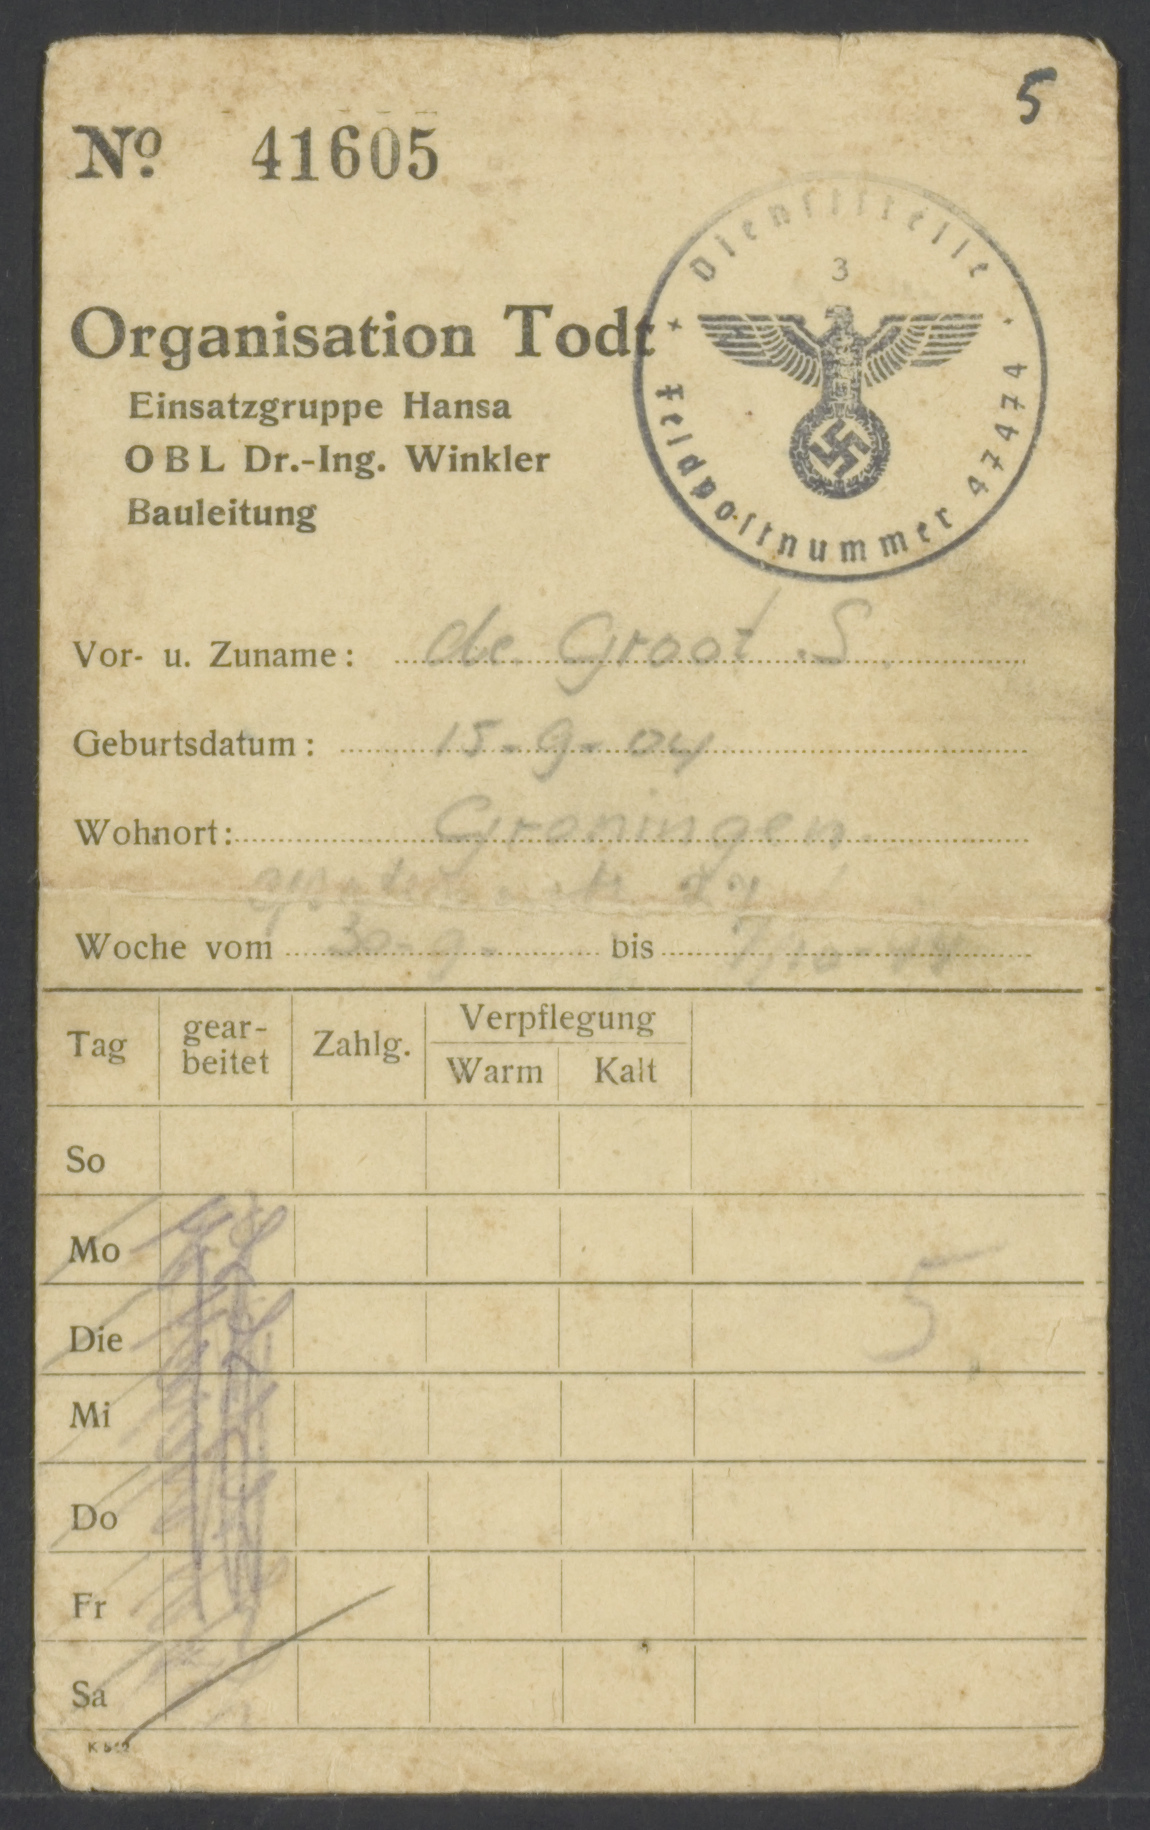 5
No. 41605
Dienststelle
3
Feldpostnummer 47474
Organisation Todt
Einsatzgruppe Hansa
OBL Dr.-Ing. Winkler
Bauleitung
Vor- u. Zuname: de Groot S.
Geburtsdatum: 15-9-04
Wohnort: Groningen.
27
Woche vom 30-9- bis 7/10-44
Tag gear-beitet Zahlg. Verpflegung
Warm Kalt
So
Mo
5
Die
Mi
Do
Fr
Sa